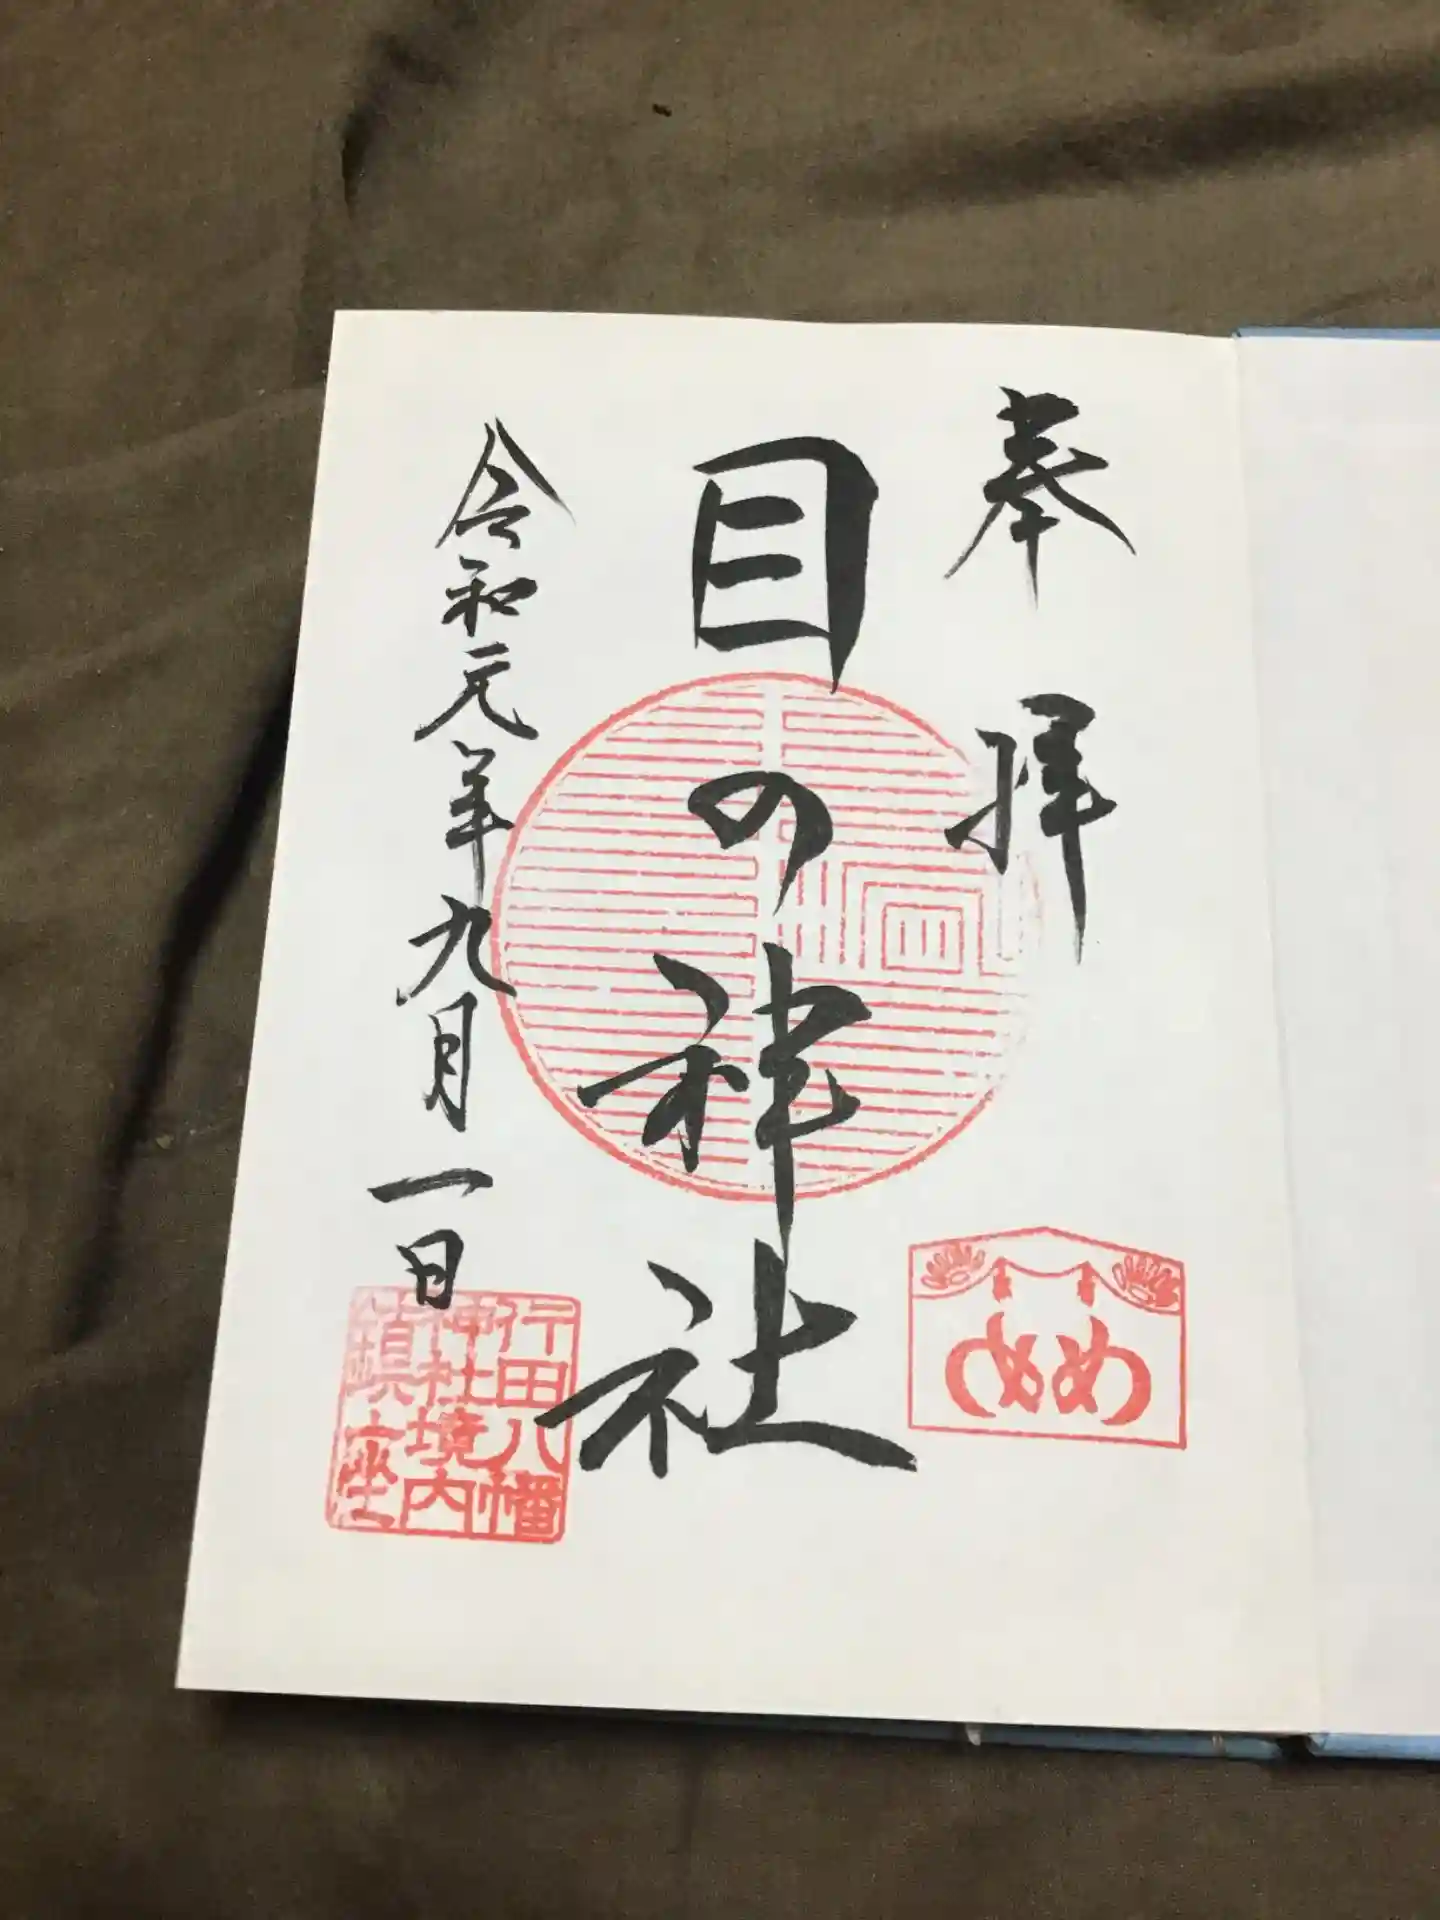 奉拝
目の神社
めめ
令和元年九月一日
行田八幡
神社境内
鎮座